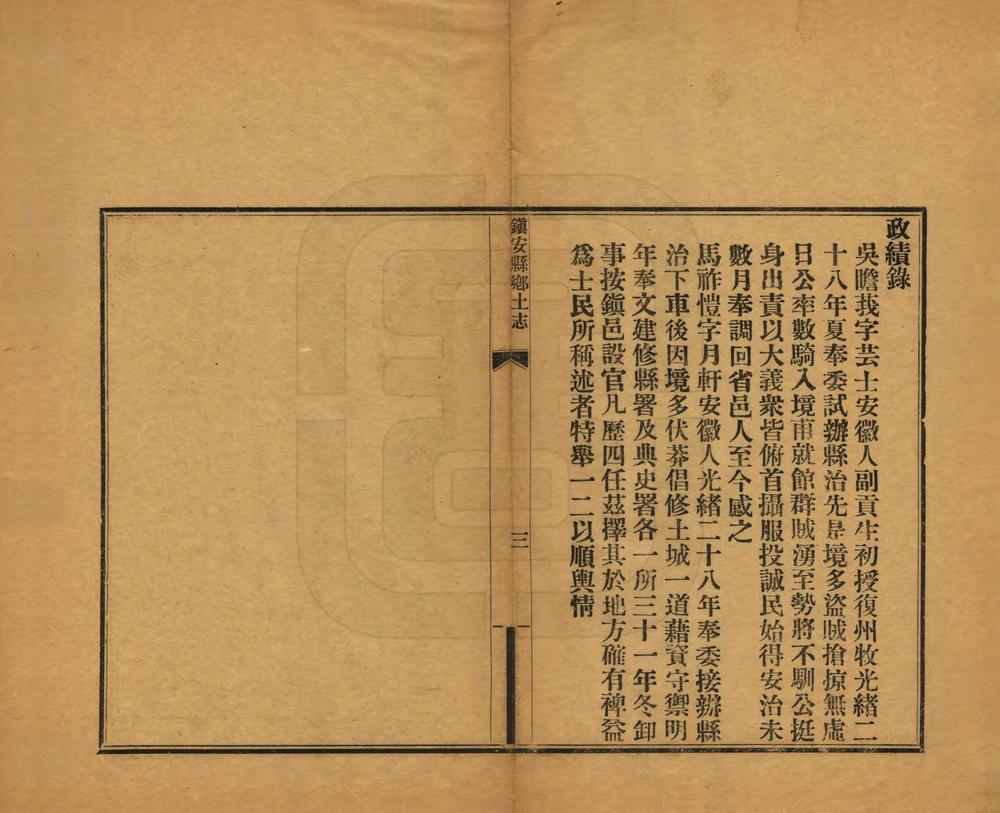 政績錄
吳瞻莪字芸士安徽人副貢生初授復州牧光緒二
十八年夏奉委試辦縣治先是境多盜賊搶掠無虛
日公率數騎入境甫就館群賊湧至勢將不馴公挺
身出責以大義衆皆俯首攝服投誠民始得安治未
數月奉調回省邑人至今感之
馬祚愷字月軒安徽人光緒二十八年奉委接辦縣
治下車後因境多伏莽倡修土城一道藉資守禦明
年奉文建修縣署及典史署各一所三十一年冬卸
事按鎭邑設官凡歷四任茲擇其於地方確有裨益
爲士民所稱述者特舉一二以順輿情
鎭安縣鄉土志
三